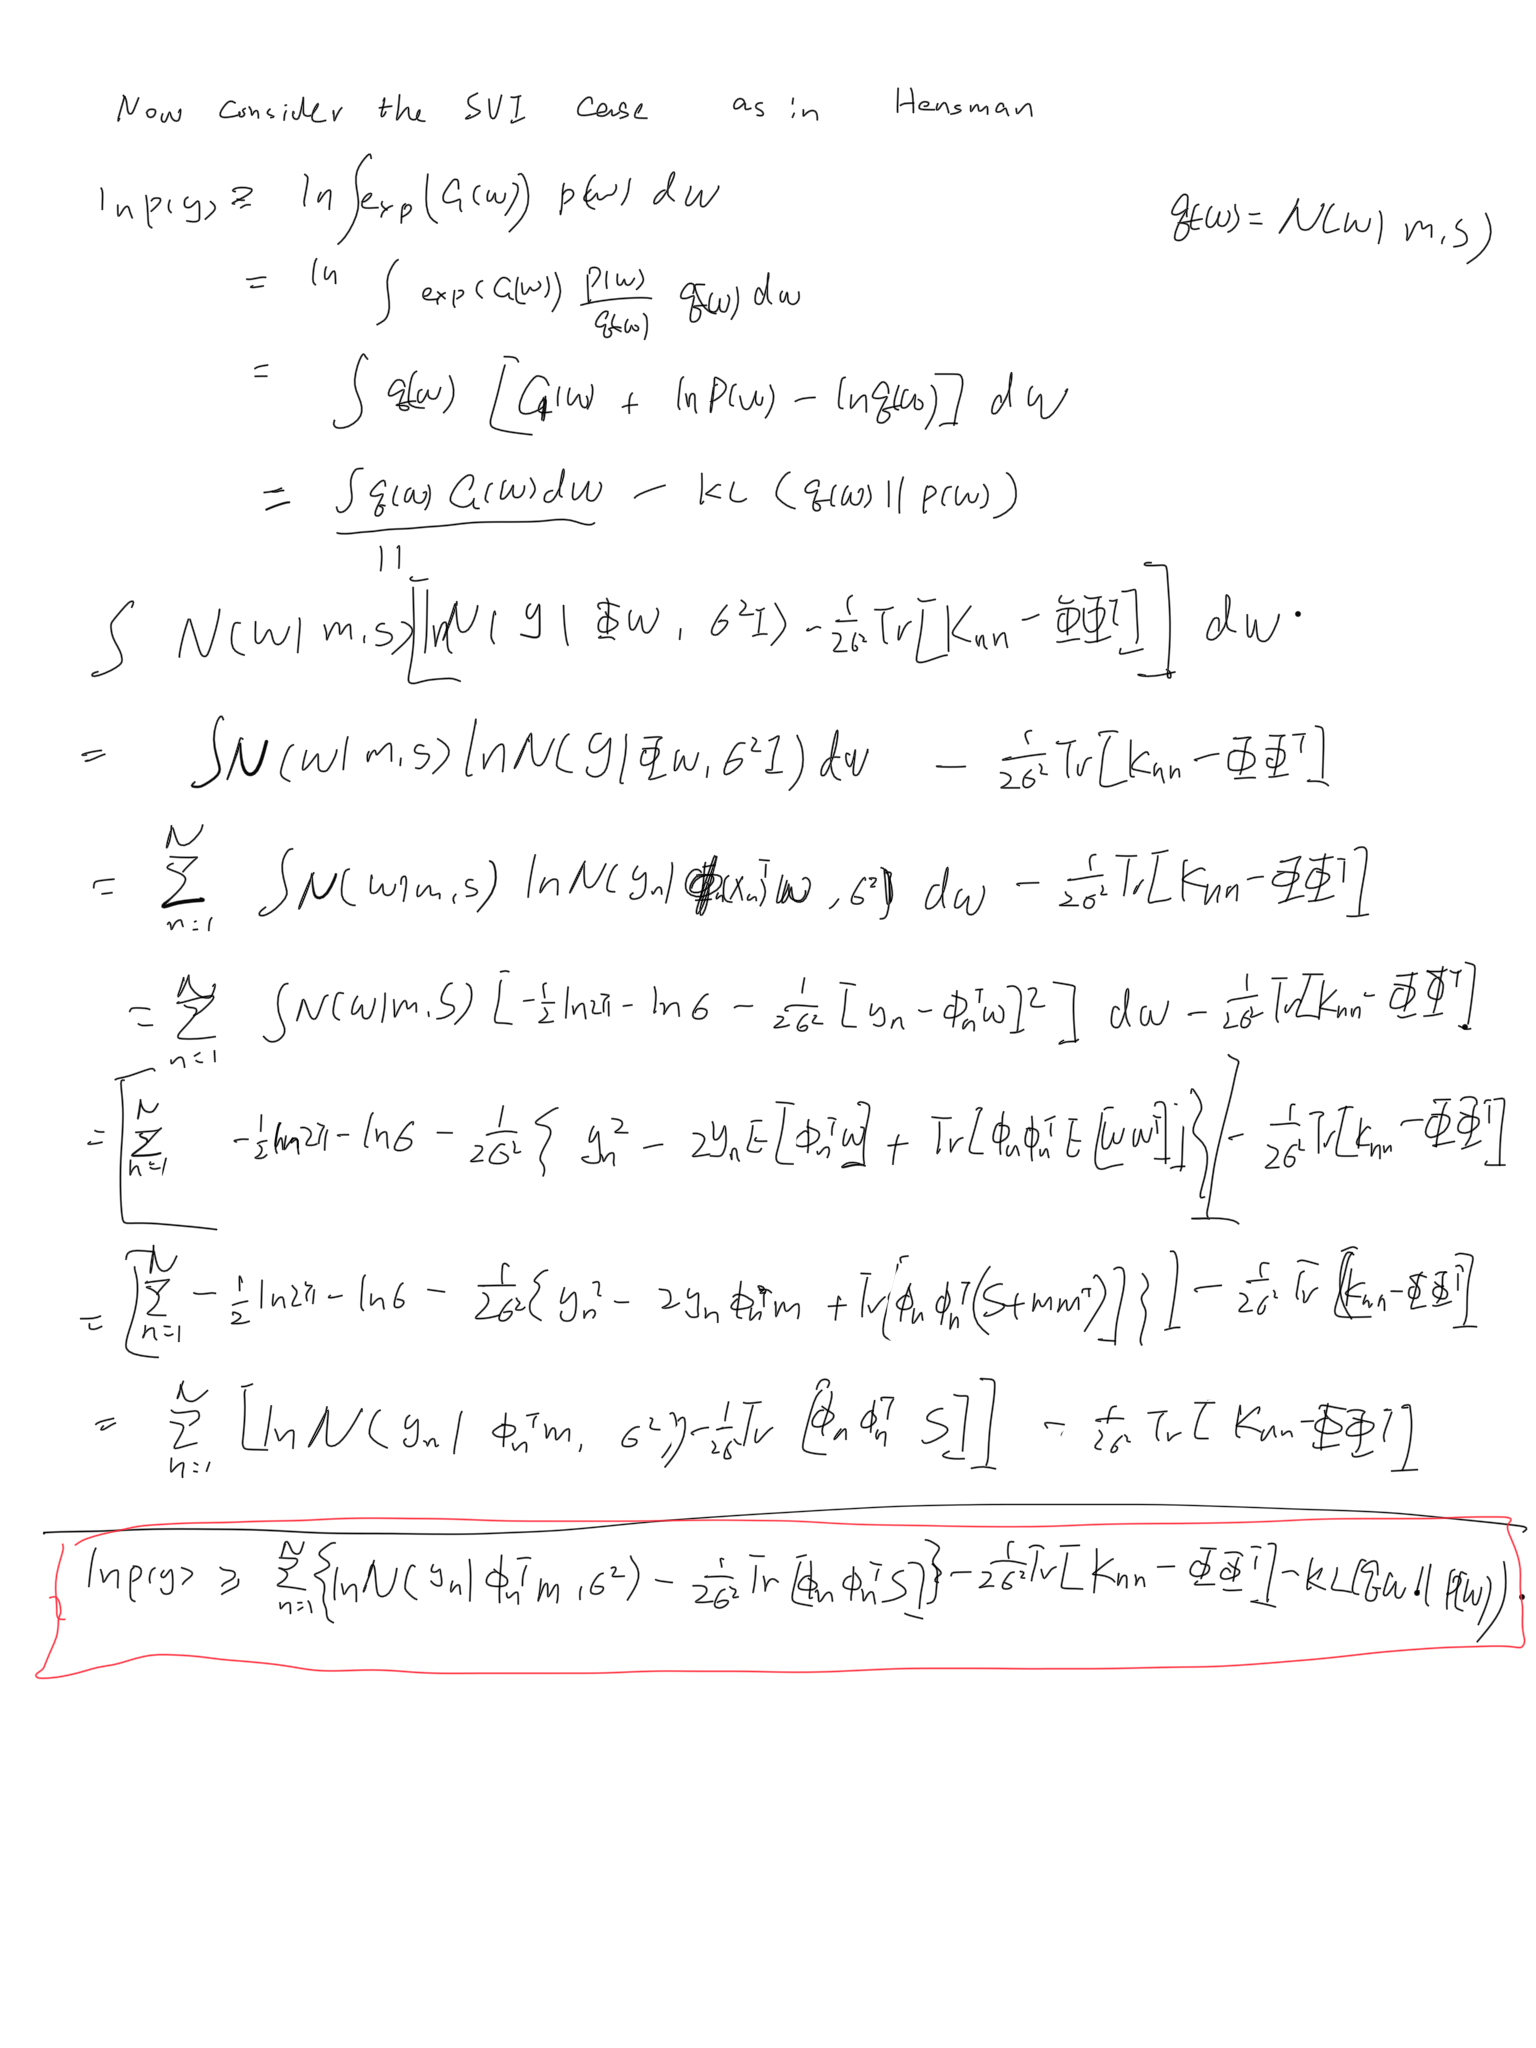 Now consider the SVI case as in Hensman
ln p(y) ≥ ln ∫ exp(G(w)) p(w) dw
q(w) = N(w| m, S)
= ln ∫ exp(G(w)) p(w)/q(w) q(w) dw
= ∫ q(w) [G(w) + ln p(w) - ln q(w)] dw
= ∫ q(w) G(w) dw - KL (q(w) || p(w))
||
∫ N(w| m, S) [ln N(y | Φw, σ²I) - 1/2σ² Tr[Knn - ΦΦᵀ]] dw.
= ∫ N(w| m, S) ln N(y | Φw, σ²I) dw - 1/2σ² Tr[Knn - ΦΦᵀ]
= Σ_{n=1}^N ∫ N(w| m, S) ln N(yn | ϕ(xn)ᵀ w, σ²) dw - 1/2σ² Tr[Knn - ΦΦᵀ]
= Σ_{n=1}^N ∫ N(w| m, S) [-1/2 ln2π - ln σ - 1/2σ² [yn - ϕnᵀw]²] dw - 1/2σ² Tr[Knn - ΦΦᵀ]
= [Σ_{n=1}^N -1/2 ln2π - ln σ - 1/2σ² { yn² - 2yn E[ϕnᵀw] + Tr[ϕnϕnᵀ E[wwᵀ]]}] - 1/2σ² Tr[Knn - ΦΦᵀ]
= [Σ_{n=1}^N - 1/2 ln2π - ln σ - 1/2σ² { yn² - 2yn ϕnᵀm + Tr[ϕn ϕnᵀ(S+mmᵀ)]}] - 1/2σ² Tr [Knn - ΦΦᵀ]
= Σ_{n=1}^N [ln N(yn | ϕnᵀm, σ²) - 1/2σ² Tr [ϕn ϕnᵀ S]] - 1/2σ² Tr [Knn - ΦΦᵀ]
ln p(y) ≥ Σ_{n=1}^N {ln N(yn | ϕnᵀm, σ²) - 1/2σ² Tr [ϕn ϕnᵀ S]} - 1/2σ² Tr[Knn - ΦΦᵀ] - KL(q(w) || p(w)).